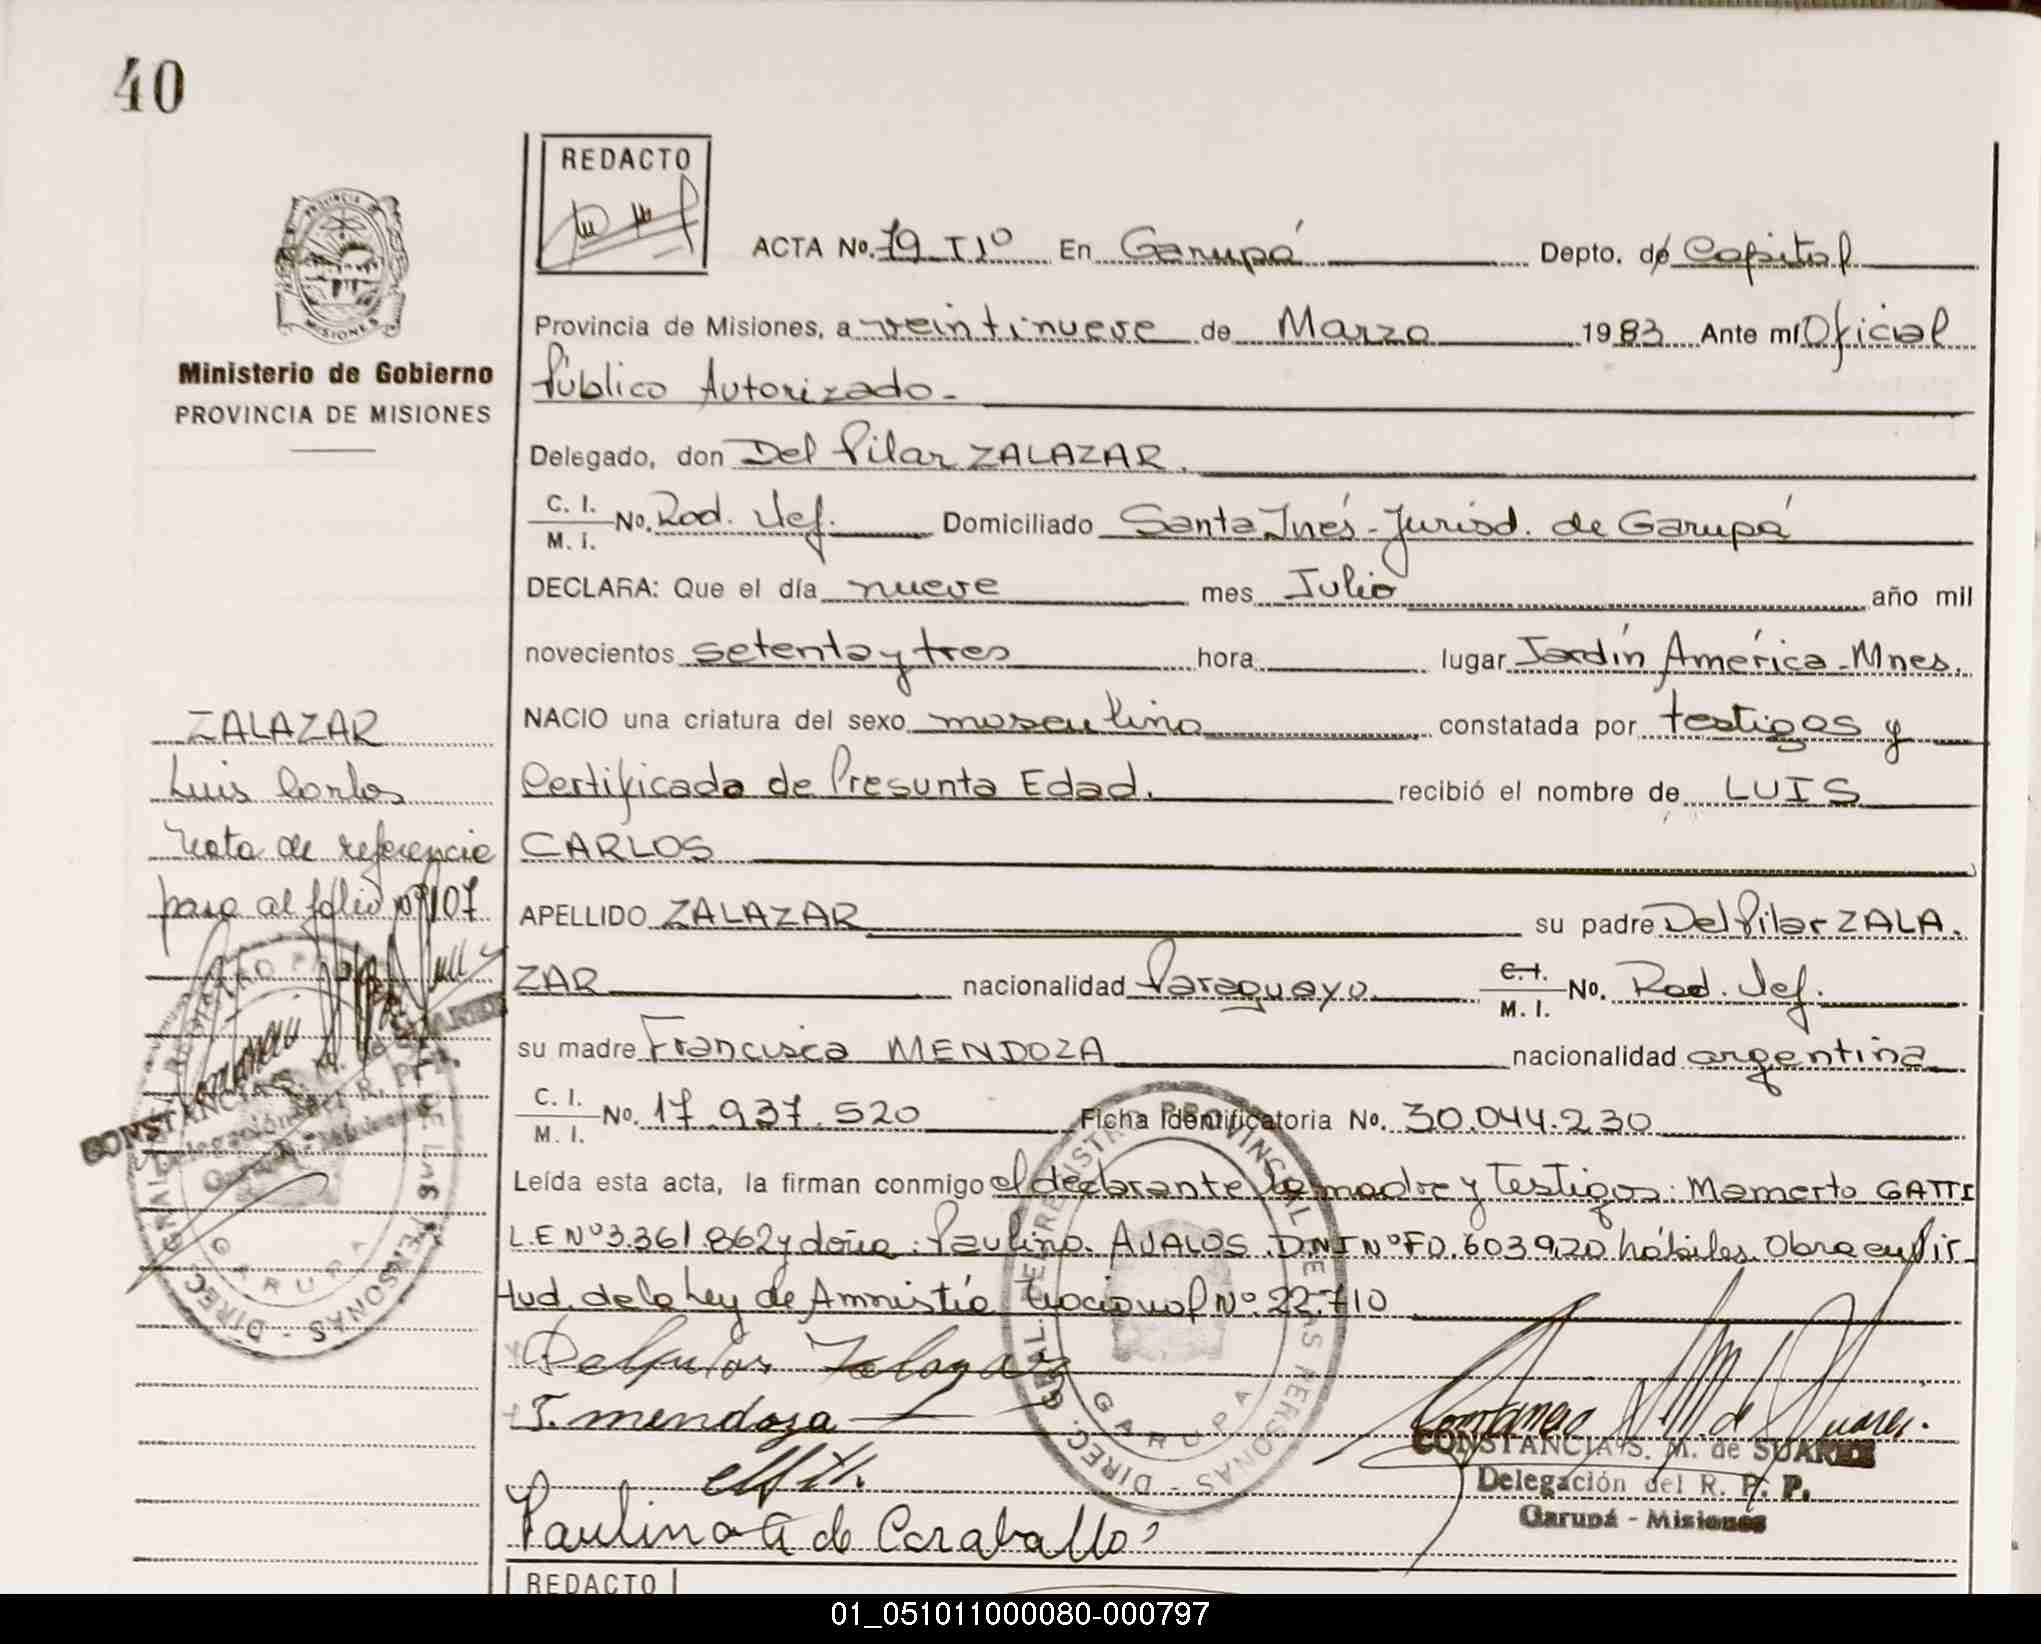 40
REDACTO
ACTA No. 79 TIº En Garupá Depto. de Capital
PROVINCIA
MISIONES
Provincia de Misiones, a veintinueve de Marzo 1983 Ante mí Oficial
Ministerio de Gobierno
PROVINCIA DE MISIONES
Público Autorizado.
Delegado, don Del Pilar ZALAZAR.
C. I.
M. I. No. Rad. Def. Domiciliado Santa Inés - Jurisd. de Garupá
DECLARA: Que el día nueve mes Julio año mil
novecientos setenta y tres hora lugar Jardín América - Mnes.
NACIO una criatura del sexo masculino constatada por testigos y
Certificado de Presunta Edad. recibió el nombre de LUIS
CARLOS
APELLIDO ZALAZAR su padre Del Pilar ZALA.
ZAR nacionalidad Paraguayo C.I.
M. I. No. Rad. Def.
su madre Francisca MENDOZA nacionalidad argentina
C. I.
M. I. No. 17.937.520 Ficha Identificatoria No. 30.044.230
Leída esta acta, la firman conmigo el declarante la madre y Testigos: Mamerto GATTI
L.E Nº 3.361.862 y doña: Paulina AVALOS DNI Nº FD.603920 hábiles. Obra en vir
tud de la Ley de Amnistía Nacional Nº 22.710
Delpilar Zalazar
F. mendoza
Paulina A de Caraballo
CONSTANCIA S. M. de SUAREZ
Delegación del R. P. P.
Garupá - Misiones
ZALAZAR
Luis Carlos
Nota de referencia
pase al folio nº 107
CONSTANCIA S. M. de SUAREZ
Delegación del R. P. P.
Garupá - Misiones
REGISTRO PROVINCIAL DE LAS PERSONAS - DIREC. GRAL.
GARUPA
REGISTRO PROVINCIAL DE LAS PERSONAS - DIREC. GRAL.
GARUPA
REDACTO
01_051011000080-000797